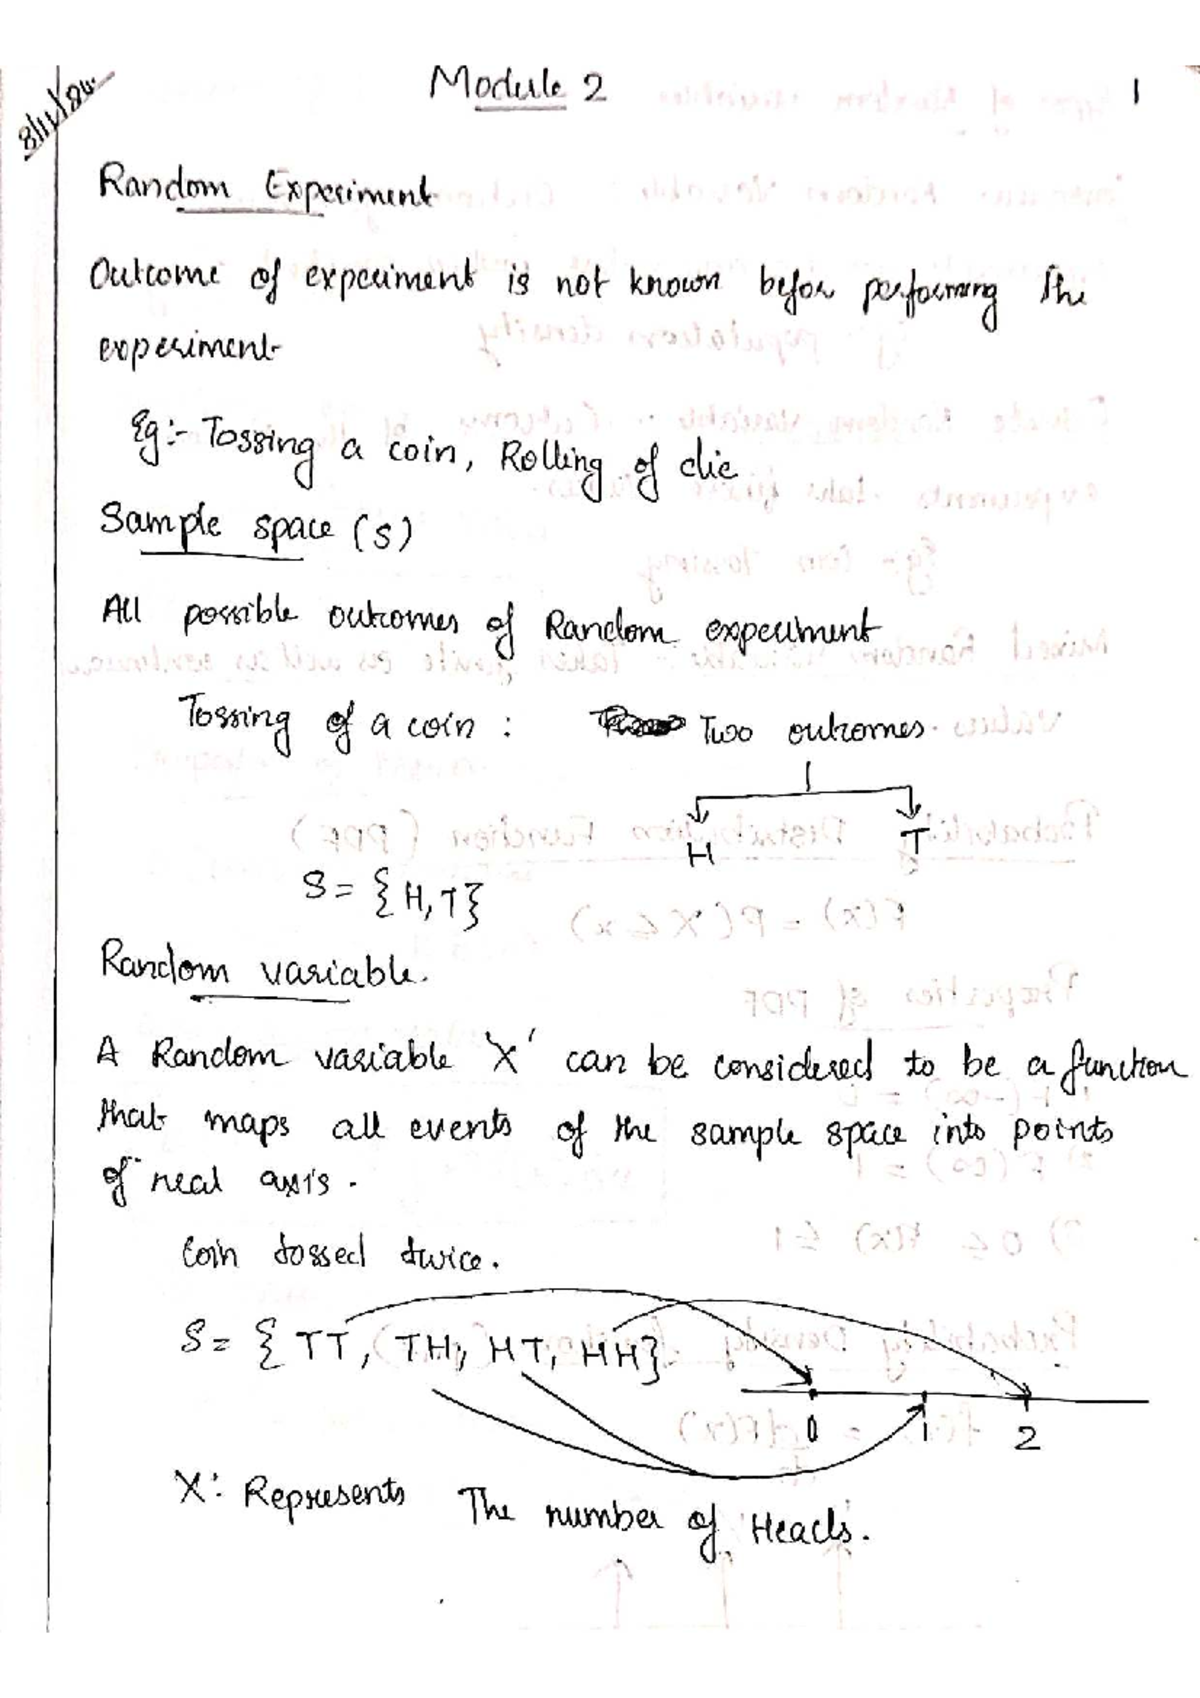 8/11/24
Module 2
1
Random Experiment
Outcome of experiment is not known before performing the
experiment
Eg:- Tossing a coin, Rolling of die
Sample space (S)
All possible outcomes of Random experiment
Tossing of a coin : Two outcomes.
H T
S = {H, T}
Random variable.
A Random variable 'X' can be considered to be a function
that maps all events of the sample space into points
of real axis.
Coin tossed twice.
S = { TT, TH, HT, HH}
0 1 2
X: Represents The number of Heads.